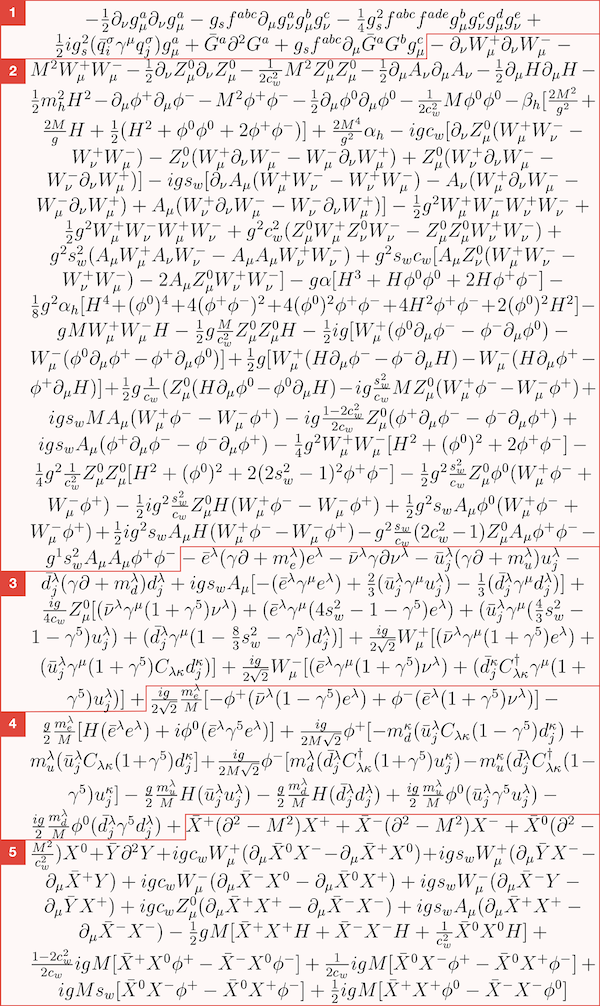 1 −½∂_νg^a_μ∂_νg^a_μ − g_sf^{abc}∂_μg^a_νg^b_μg^c_ν − ¼g²_sf^{abc}f^{ade}g^b_μg^c_νg^d_μg^e_ν +
½ig²_s(q̄^σ_iγ^μq^σ_j)g^a_μ + Ḡ^a∂²G^a + g_sf^{abc}∂_μḠ^aG^bg^c_μ − ∂_νW^+_μ∂_νW^-_μ −
2 M²W^+_μW^-_μ − ½∂_νZ^0_μ∂_νZ^0_μ − \frac{1}{2c²_w}M²Z^0_μZ^0_μ − ½∂_μA_ν∂_μA_ν − ½∂_μH∂_μH −
½m²_hH² − ∂_μφ^+∂_μφ^- − M²φ^+φ^- − ½∂_μφ^0∂_μφ^0 − \frac{1}{2c²_w}Mφ^0φ^0 − β_h[\frac{2M²}{g²} +
\frac{2M}{g}H + ½(H² + φ^0φ^0 + 2φ^+φ^-)] + \frac{2M^4}{g²}α_h − igc_w[∂_νZ^0_μ(W^+_μW^-_ν −
W^+_νW^-_μ) − Z^0_ν(W^+_μ∂_νW^-_μ − W^-_μ∂_νW^+_μ) + Z^0_μ(W^+_ν∂_νW^-_μ −
W^-_ν∂_νW^+_μ)] − igs_w[∂_νA_μ(W^+_μW^-_ν − W^+_νW^-_μ) − A_ν(W^+_μ∂_νW^-_μ −
W^-_μ∂_νW^+_μ) + A_μ(W^+_ν∂_νW^-_μ − W^-_ν∂_νW^+_μ)] − ½g²W^+_μW^-_μW^+_νW^-_ν +
½g²W^+_μW^-_νW^+_μW^-_ν + g²c²_w(Z^0_μW^+_μZ^0_νW^-_ν − Z^0_μZ^0_μW^+_νW^-_ν) +
g²s²_w(A_μW^+_μA_νW^-_ν − A_μA_μW^+_νW^-_ν) + g²s_wc_w[A_μZ^0_ν(W^+_μW^-_ν −
W^+_νW^-_μ) − 2A_μZ^0_μW^+_νW^-_ν] − gα[H³ + Hφ^0φ^0 + 2Hφ^+φ^-] −
⅛g²α_h[H^4+(φ^0)^4+4(φ^+φ^-)²+4(φ^0)²φ^+φ^-+4H²φ^+φ^-+2(φ^0)²H²]−
gMW^+_μW^-_μH − ½g\frac{M}{c²_w}Z^0_μZ^0_μH − ½ig[W^+_μ(φ^0∂_μφ^- − φ^-∂_μφ^0) −
W^-_μ(φ^0∂_μφ^+ − φ^+∂_μφ^0)]+½g[W^+_μ(H∂_μφ^- − φ^-∂_μH)−W^-_μ(H∂_μφ^+ −
φ^+∂_μH)]+½g\frac{1}{c_w}(Z^0_μ(H∂_μφ^0−φ^0∂_μH)−ig\frac{s²_w}{c_w}MZ^0_μ(W^+_μφ^-−W^-_μφ^+)+
igs_wMA_μ(W^+_μφ^- − W^-_μφ^+) − ig\frac{1−2c²_w}{2c_w}Z^0_μ(φ^+∂_μφ^- − φ^-∂_μφ^+) +
igs_wA_μ(φ^+∂_μφ^- − φ^-∂_μφ^+) − ¼g²W^+_μW^-_μ[H² + (φ^0)² + 2φ^+φ^-] −
¼g²\frac{1}{c²_w}Z^0_μZ^0_μ[H² + (φ^0)² + 2(2s²_w − 1)²φ^+φ^-] − ½g²\frac{s²_w}{c_w}Z^0_μφ^0(W^+_μφ^- +
W^-_μφ^+) − ½ig²\frac{s²_w}{c_w}Z^0_μH(W^+_μφ^- − W^-_μφ^+) + ½g²s_wA_μφ^0(W^+_μφ^- +
W^-_μφ^+) + ½ig²s_wA_μH(W^+_μφ^- − W^-_μφ^+) − g²\frac{s_w}{c_w}(2c²_w − 1)Z^0_μA_μφ^+φ^- −
g^1s²_wA_μA_μφ^+φ^- − ē^λ(γ∂ + m^λ_e)e^λ − ν̄^λγ∂ν^λ − ū^λ_j(γ∂ + m^λ_u)u^λ_j −
3 d̄^λ_j(γ∂ + m^λ_d)d^λ_j + igs_wA_μ[−(ē^λγ^μe^λ) + ⅔(ū^λ_jγ^μu^λ_j) − ⅓(d̄^λ_jγ^μd^λ_j)] +
\frac{ig}{4c_w}Z^0_μ[(ν̄^λγ^μ(1 + γ^5)ν^λ) + (ē^λγ^μ(4s²_w − 1 − γ^5)e^λ) + (ū^λ_jγ^μ(\frac{4}{3}s²_w −
1 − γ^5)u^λ_j) + (d̄^λ_jγ^μ(1 − \frac{8}{3}s²_w − γ^5)d^λ_j)] + \frac{ig}{2√2}W^+_μ[(ν̄^λγ^μ(1 + γ^5)e^λ) +
(ū^λ_jγ^μ(1 + γ^5)C_{λκ}d^κ_j)] + \frac{ig}{2√2}W^-_μ[(ē^λγ^μ(1 + γ^5)ν^λ) + (d̄^κ_jC^†_{λκ}γ^μ(1 +
γ^5)u^λ_j)] + \frac{ig}{2√2}\frac{m^λ_e}{M}[−φ^+(ν̄^λ(1 − γ^5)e^λ) + φ^-(ē^λ(1 + γ^5)ν^λ)] −
4 \frac{g}{2}\frac{m^λ_e}{M}[H(ē^λe^λ) + iφ^0(ē^λγ^5e^λ)] + \frac{ig}{2M√2}φ^+[−m^κ_d(ū^λ_jC_{λκ}(1 − γ^5)d^κ_j) +
m^λ_u(ū^λ_jC_{λκ}(1+γ^5)d^κ_j] + \frac{ig}{2M√2}φ^-[m^λ_d(d̄^λ_jC^†_{λκ}(1+γ^5)u^κ_j) − m^κ_u(d̄^λ_jC^†_{λκ}(1−
γ^5)u^κ_j] − \frac{g}{2}\frac{m^λ_u}{M}H(ū^λ_ju^λ_j) − \frac{g}{2}\frac{m^λ_d}{M}H(d̄^λ_jd^λ_j) + \frac{ig}{2}\frac{m^λ_u}{M}φ^0(ū^λ_jγ^5u^λ_j) −
\frac{ig}{2}\frac{m^λ_d}{M}φ^0(d̄^λ_jγ^5d^λ_j) + X̄^+(∂² − M²)X^+ + X̄^-(∂² − M²)X^- + X̄^0(∂² −
5 \frac{M²}{c²_w})X^0 + Ȳ∂²Y + igc_wW^+_μ(∂_μX̄^0X^- − ∂_μX̄^+X^0) + igs_wW^+_μ(∂_μȲX^- −
∂_μX̄^+Y) + igc_wW^-_μ(∂_μX̄^-X^0 − ∂_μX̄^0X^+) + igs_wW^-_μ(∂_μX̄^-Y −
∂_μȲX^+) + igc_wZ^0_μ(∂_μX̄^+X^+ − ∂_μX̄^-X^-) + igs_wA_μ(∂_μX̄^+X^+ −
∂_μX̄^-X^-) − ½gM[X̄^+X^+H + X̄^-X^-H + \frac{1}{c²_w}X̄^0X^0H] +
\frac{1−2c²_w}{2c_w}igM[X̄^+X^0φ^+ − X̄^-X^0φ^-] + \frac{1}{2c_w}igM[X̄^0X^-φ^+ − X̄^0X^+φ^-] +
igMs_w[X̄^0X^-φ^+ − X̄^0X^+φ^-] + ½igM[X̄^+X^+φ^0 − X̄^-X^-φ^0]